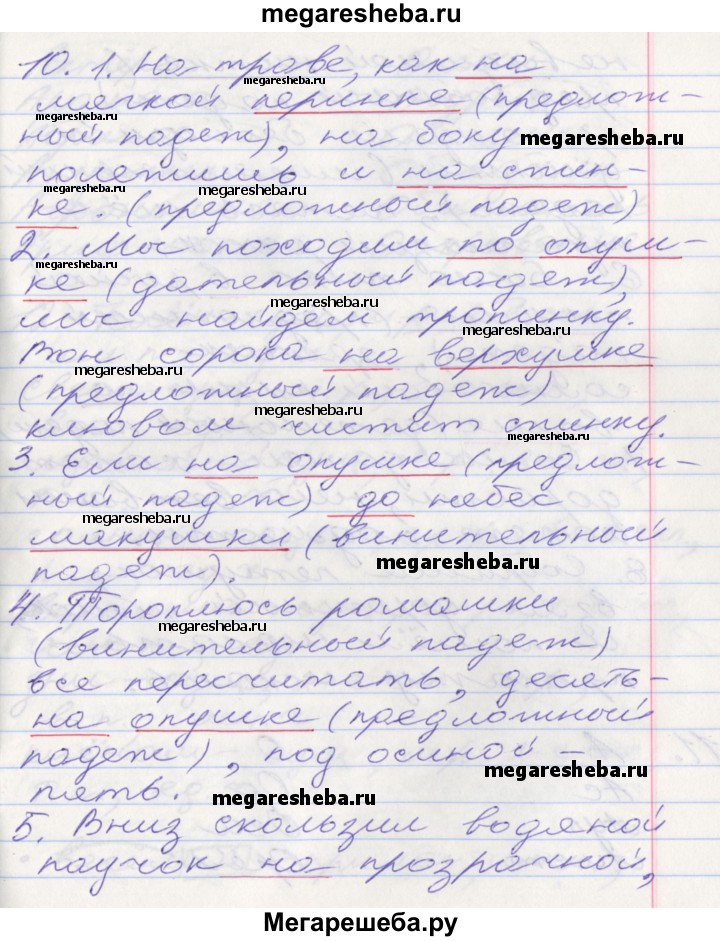 megaresheba.ru
10. 1. На траве, как на
megaresheba.ru
мягкой перинке (предлож-
megaresheba.ru
ный падеж), на боку
megaresheba.ru
полетишь и на спин-
megaresheba.ru
megaresheba.ru
ке. (предложный падеж)
2. Мы походим по опуш-
megaresheba.ru
ке (дательный падеж),
megaresheba.ru
мы найдём тропинку.
megaresheba.ru
Вон сорока на верхушке
megaresheba.ru
(предложный падеж)
megaresheba.ru
клювом чистит спинку.
megaresheba.ru
3. Ели на опушке (предлож-
ный падеж) до небес
megaresheba.ru
макушки (винительный
megaresheba.ru
падеж).
4. Тороплюсь ромашки
megaresheba.ru
(винительный падеж)
все пересчитать, десять-
на опушке (предложный
падеж), под осиной -
megaresheba.ru
пять.
megaresheba.ru
5. Вниз скользил водяной
паучок на прозрачной,
Мегарешеба.ру